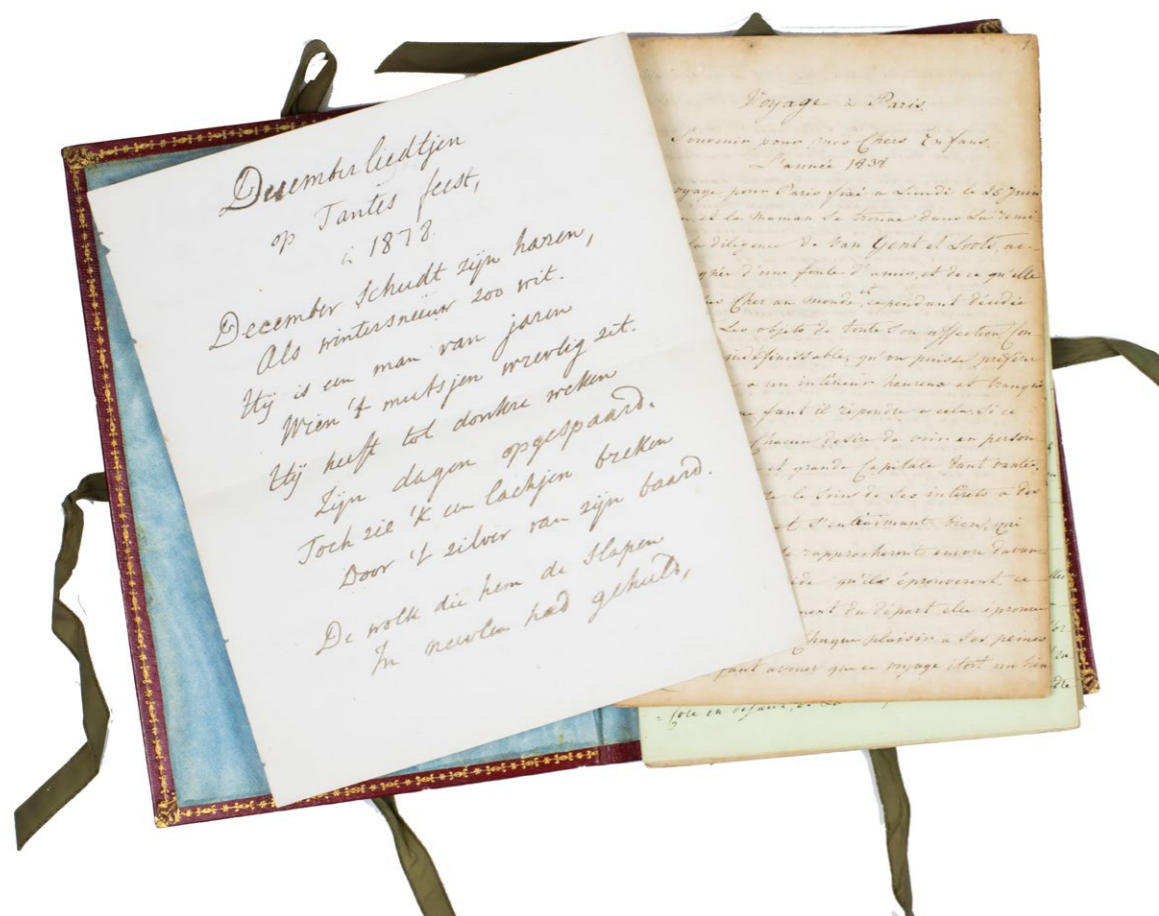 Decemberliedtjen
op Tantes feest,
in 1878.
December schudt zijn haren,
Als wintersneeuw zoo wit.
Hij is een man van jaren
Wien 't mutsjen wrevlig zit.
Hij heeft tot donkre weken
Zijn dagen opgespaard.
Toch zie 'k een lachjen breken
Door 't zilver van zijn baard.
De wolk die hem de slapen
In nevelen had gehuld,
1
Voyage à Paris
Souvenir pour nos Chers Enfans.
L'année 1838
voyage pour Paris fixé a Lundi le 25 Juin
et la Maman se trouve dans la
la diligence de Van Gent et Loots, ac-
d'une foule d'amis, et de ce qu'elle
Cher au monde, et cependant décidée
les objets de toute son affection
indéfinissable, qu'on puisse préférer
a un intérieur heureux et tranquil
faut il repondre a cela. Si ce
Chacun desire de voir en person
et grande Capitale tant vantée,
le soin de ses intérêts a des
et s'entr'aimant bien, qui
rapprocheront encore davan
qu'ils éprouveront ce
du départ elle éprouve
Chaque plaisir a ses peines
faut avouer que ce voyage étoit un bien